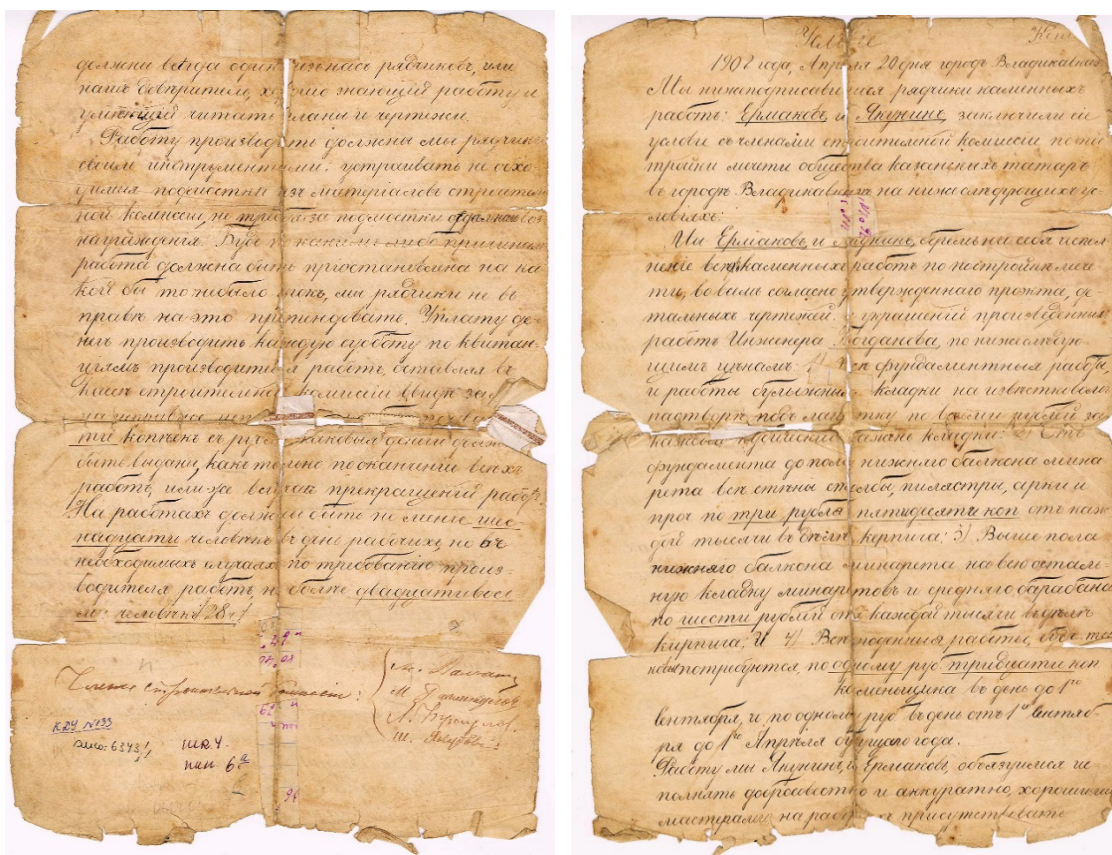 должны всегда один изъ насъ рядчиковъ, или
нашъ довѣритель, хорошо знающій работу и
умѣющій читать планы и чертежи.
Работу производить должны мы рядчики
своим инструментами: устраивать необхо
димыя подмостки изъ матеріаловъ строитель
ной комиссіи, не требуя за подмостки отдѣльнаго воз
награжденія. Буде по какимъ либо причинамъ
работа должна быть пріостановлена на ка
кой бы то небыло срокъ, мы рядчики не въ
правѣ на это претендовать. Уплату де
негъ производить каждую субботу по квитан
ціямъ производителя работъ, оставляя въ
кассѣ строительной комиссіи ввидѣ за
за
ти копѣекъ съ рубля, таковыя деньги должны
быть выданы, какъ только по окончаніи всѣхъ
работъ, или-же вслучаѣ прекращеній работъ.
На работахъ должны быть не менѣе шес
надцати человѣкъ въ день рабочихъ, но въ
необходимыхъ случаяхъ по требованію произ-
водителя работъ не болѣе двадцативось
ми человѣкъ /28/
"29"
Члены строительной комиссіи:
КДУ №133
6343/1
шк. 4.
пап 6а
Условіе
1902 года, Апрѣля 20 дня городъ Владикавказъ
Мы нижеподписавшіяся рядчики каменныхъ
работъ: Ермаковъ и Якунинъ, заключили сіе
условіе съ членами строительной комиссіи по пос
тройки мечети общества казанскихъ татаръ
въ городѣ Владикавказѣ на нижеслѣдующихъ ус-
ловіяхъ:
Мы Ермаковъ и Якунинъ, беремъ на себя испол
неніе всѣхъ каменныхъ работъ по постройкѣ мече
ти, во всемъ согласно утвержденнаго проэкта, де
тальныхъ чертежей и украшеній производенныхъ
работъ Инженера Богданова, по нижеслѣдую-
щимъ цѣнамъ: 1/ Всѣ фундаментныя работы,
и работы булыжной кладки на известковомъ
растворѣ подъ лопатку по восьми рублей за
каждый кубической сажень кладки: 2/ Отъ
фундамента до пола нижняго балкона мина
рета всѣ стѣны столбы, пилястры, арки и
проч по три рубля пятидесяти коп отъ каж
дой тысячи въ дѣлѣ кирпича; 3/ Выше пола
нижняго балкона минарета на всю осталь-
ную кладку минаретовъ и средняго барабана
по шести рублей отъ каждой тысячи въ дѣлѣ
кирпича; И 4/ Всѣ поденныя работы, буде та
ковыя потребуются, по одному руб тридцати коп
каменьщика въ день до 1го
Сентября, и по одному руб въ день отъ 1го Сентяб-
ря до 1го Апрѣля будущаго года.
Работу мы Якунинъ, и Ермаковъ, обязуимся ис
полнять добросовѣстно и аккуратно, хорошими
мастерами, на работахъ присутствовать